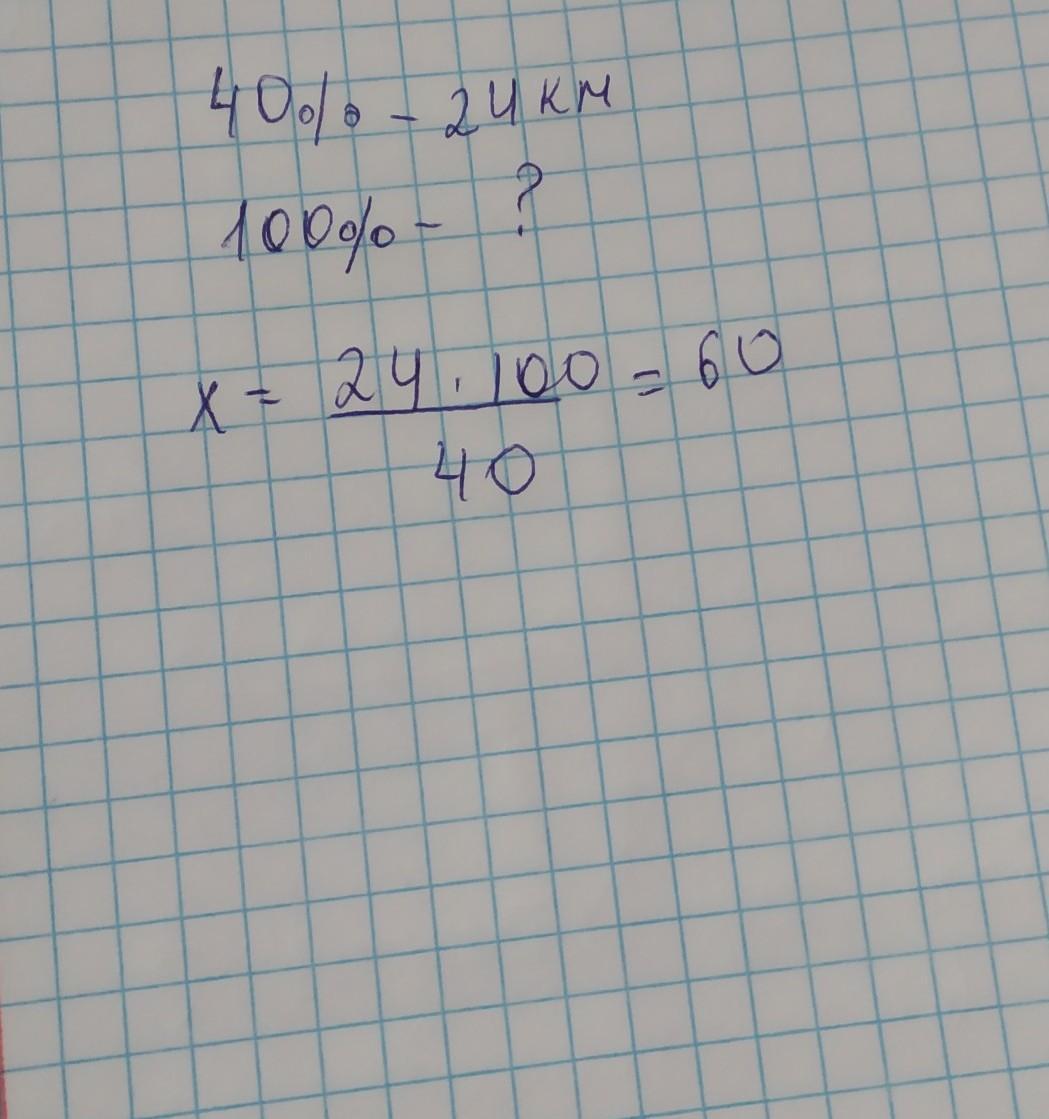 40% - 24 км
100% - ?
x = 24 · 100 = 60
40